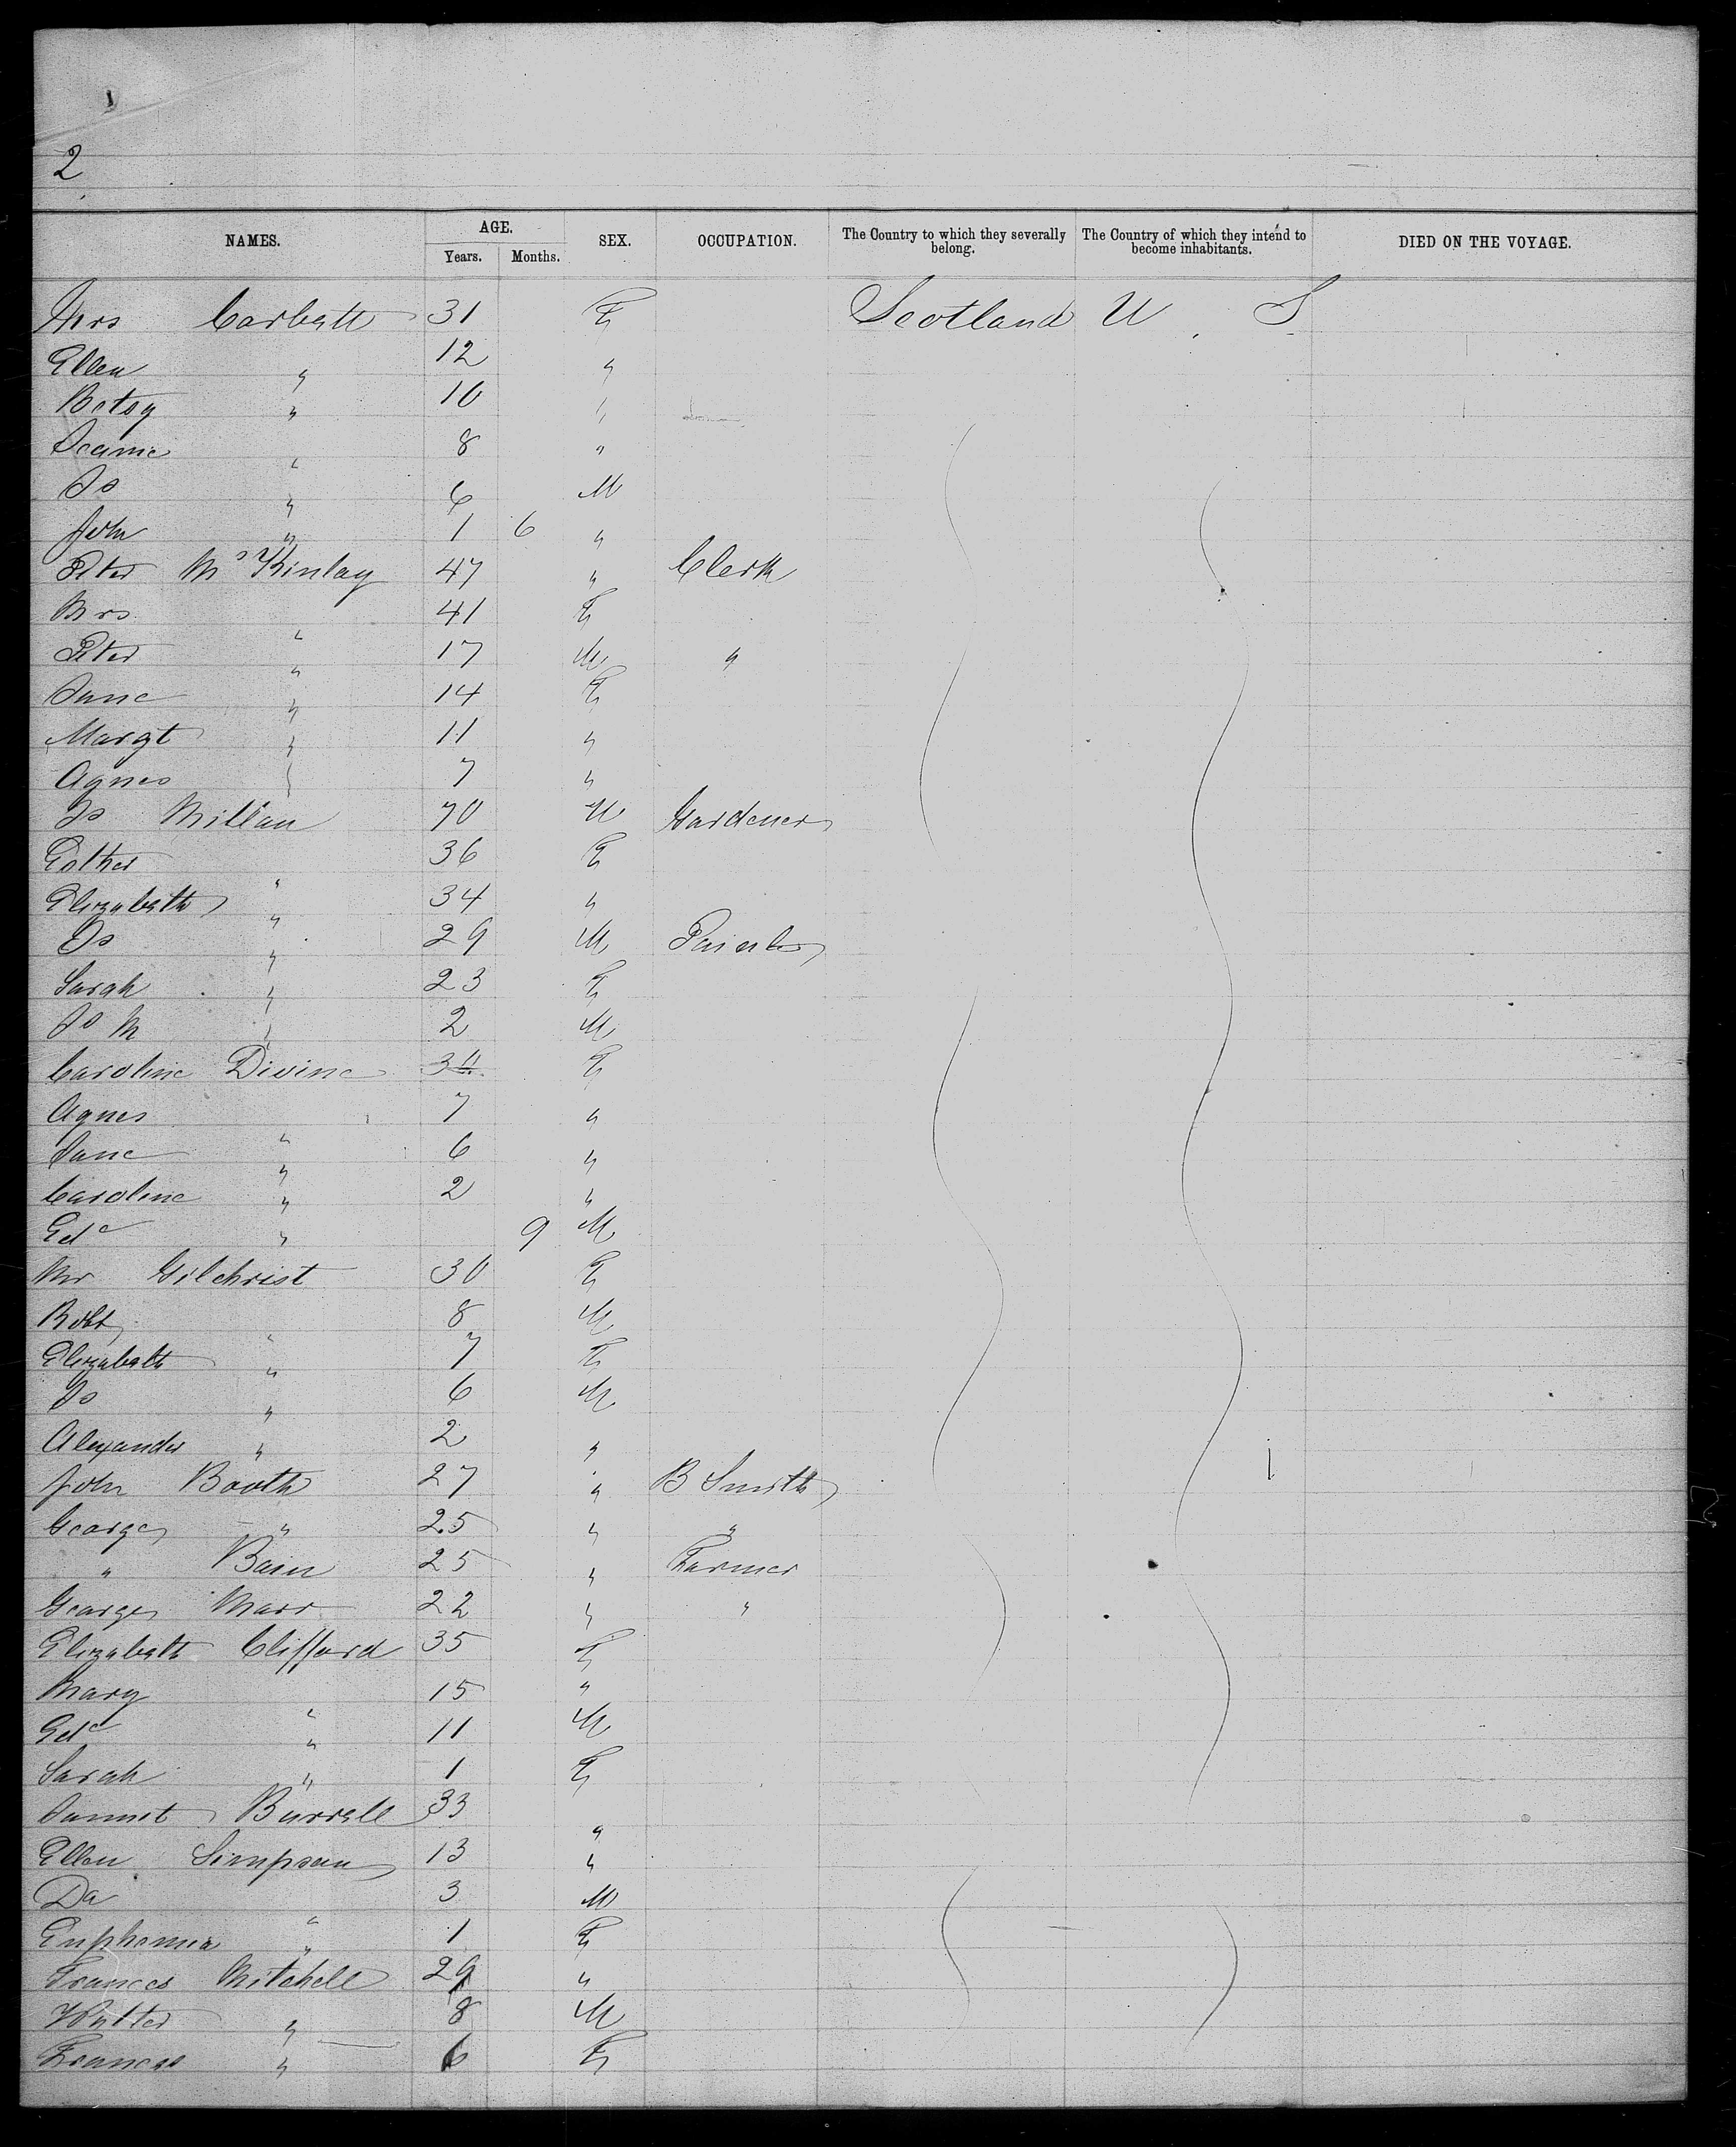 2
NAMES. AGE. Years. Months. SEX. OCCUPATION. The Country to which they severally belong. The Country of which they intend to become inhabitants. DIED ON THE VOYAGE.
Mrs Corbett 31 F Scotland U S
Ellen " 12 "
Betsy " 10 "
Jeanie " 8 "
Js " 6 M
John " 1 6 "
Peter McKinlay 47 " Clerk
Mrs " 41 F
Peter " 17 M "
Jane " 14 F
Margt " 11 "
Agnes " 7 "
Js Millan 70 M Gardener
Esther " 36 F
Elizabeth " 34 "
Js " 29 M Painter
Sarah " 23 F
Js M " 2 M
Caroline Divine 34 F
Agnes " 7 "
Jane " 6 "
Caroline " 2 "
Edd " 9 M
Mrs Gilchrist 30 F
Robt " 8 M
Elizabeth " 7 F
Js " 6 M
Alexander " 2 "
John Booth 27 " B Smith
George " 25 " "
" 25 " Farmer
George Marr 22 " "
Elizabeth Clifford 35 F
Mary " 15 "
Edd " 11 M
Sarah " 1 F
Burrell 33 "
Ellen Simpson 13 "
Da " 3 M
Euphemia " 1 F
Frances Mitchell 29 "
Walter " 8 M
Frances " 6 F